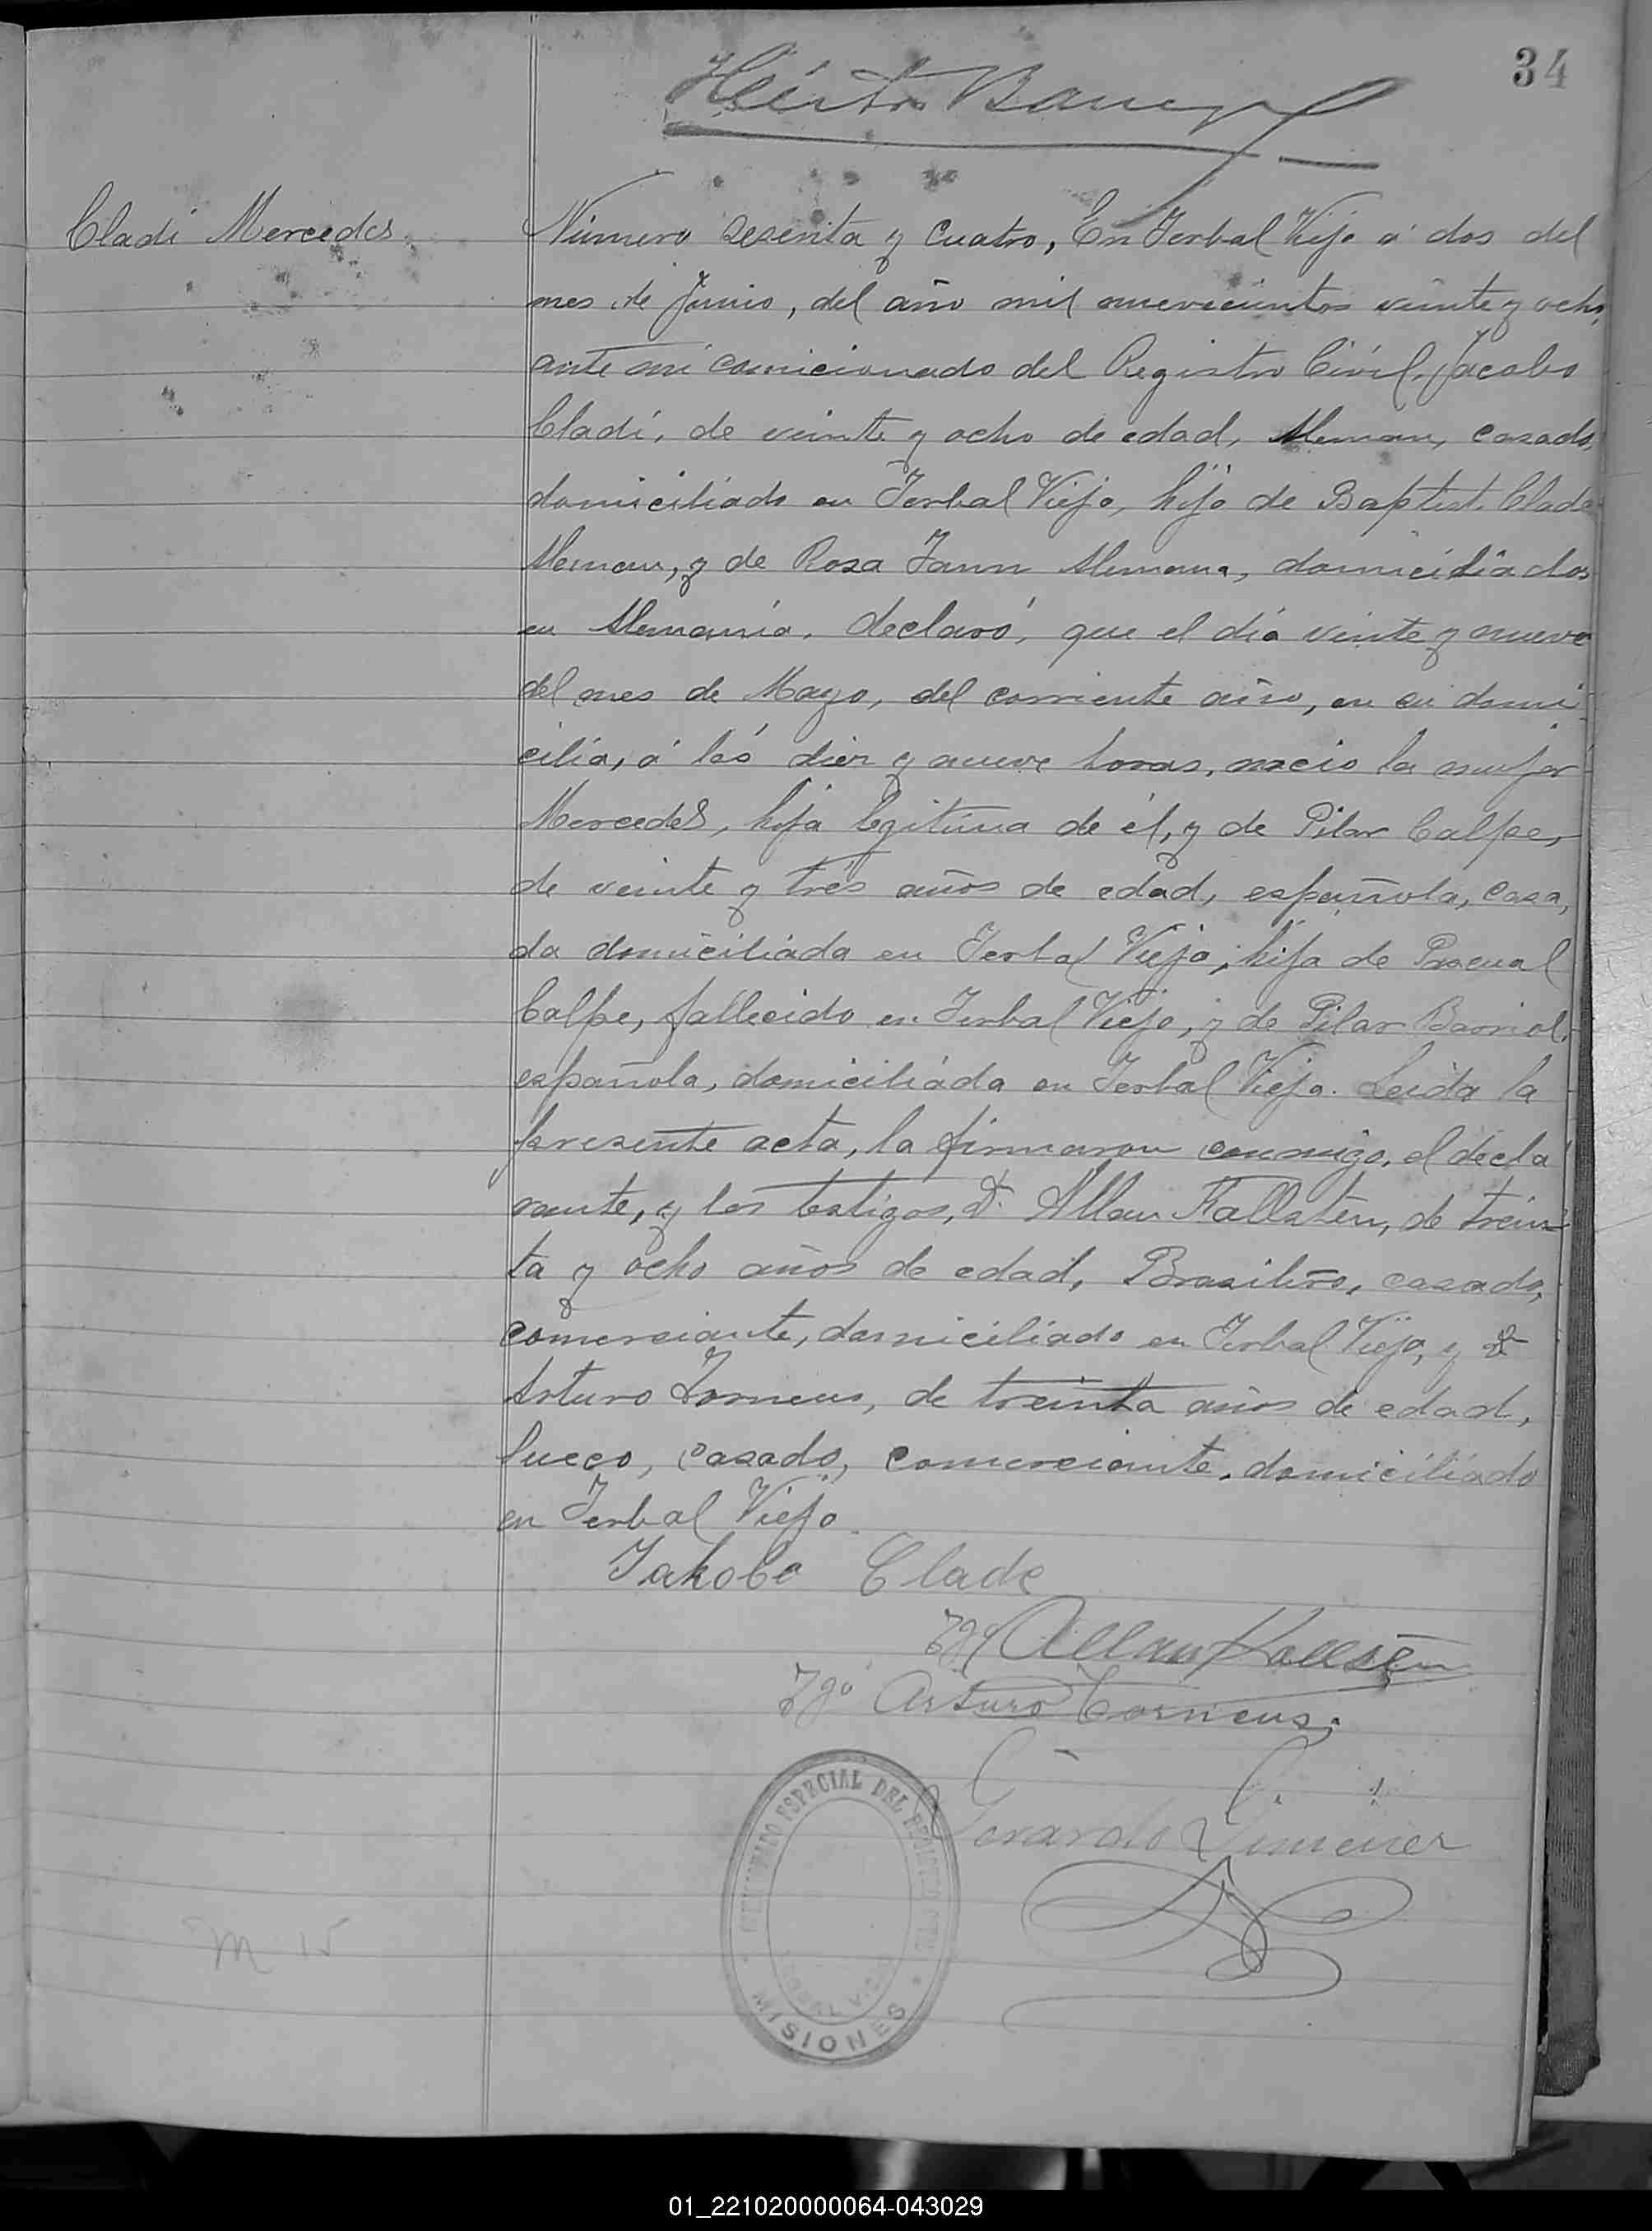 34
Cladi Mercedes
Número sesenta y cuatro, En Yerbal Viejo á dos del
mes de Junio, del año mil novecientos veinte y ocho,
ante mi comicionado del Registro Civíl, Jacobo
Cladi, de veinte y ocho de edad, Aleman, casado,
domiciliado en Yerbal Viejo, hijo de Baptist Clade
Aleman, y de Rosa Jann Alemana, domiciliados
en Alemania, declaró, que el día veinte y nueve
del mes de Mayo, del corriente año, en su domi-
cilio, á las diez y nueve horas, nació la mujer
Mercedes, hija legitima de él, y de Pilar Calpe,
de veinte y tres años de edad, española, casa,
da domiciliada en Yerbal Viejo, hija de Pascual
Calpe, fallecido en Yerbal Viejo, y de Pilar Barriol,
española, domiciliáda en Yerbal Viejo. Leida la
presente acta, la firmaron conmigo, el decla
rante, y los testigos, D. Allan Kallsten, de trein-
ta y ocho años de edad, Brasilero, casado,
comerciante, domiciliado en Yerbal Viejo, y D
Arturo Torneus, de treinta años de edad,
Sueco, casado, comerciante, domiciliado
en Yerbal Viejo
Jakobe Clade
Tgo Allan Kallsten
Tgo Arturo Torneus.
Gerardo Jimenez
ESPECIAL DEL REGISTRO CIVIL
MISIONES
M 15
01_221020000064-043029